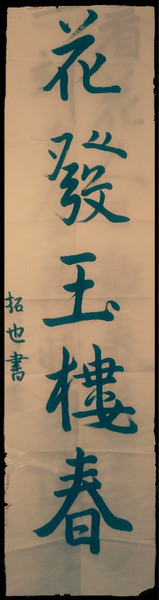 花發玉樓春
拓也書